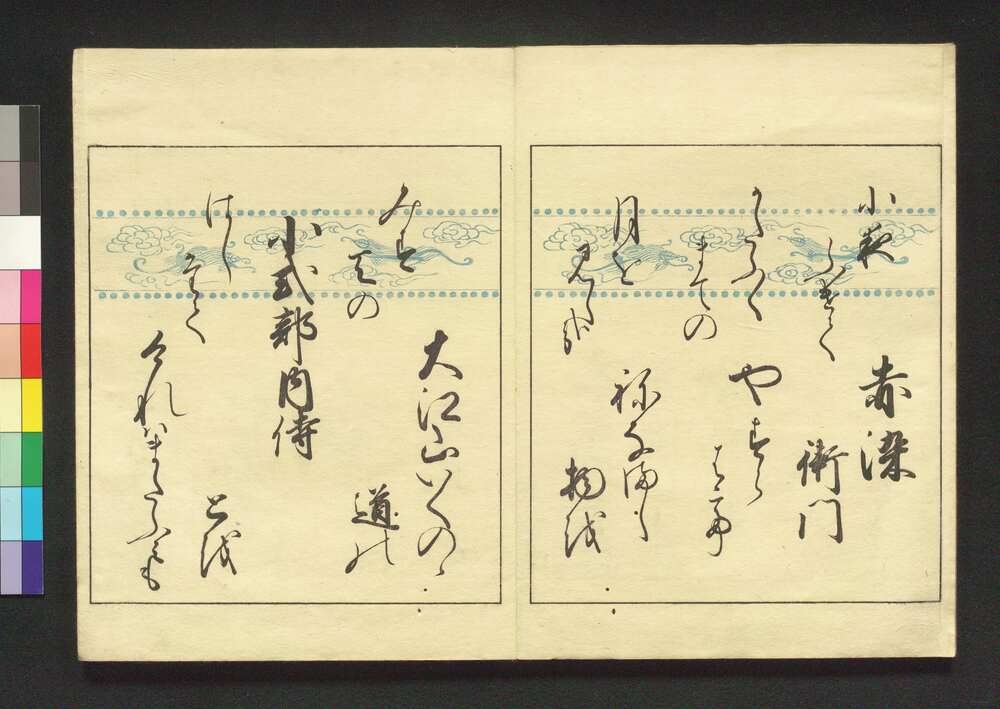 赤染
衛門
やすら
はて
ねなまし
物を
小夜
ふけて
かたふく
まての
月を
見し哉
小式部内侍
大江山いくのゝ
道の
とを
けれはまたふみも
みす
天の
はし
たて